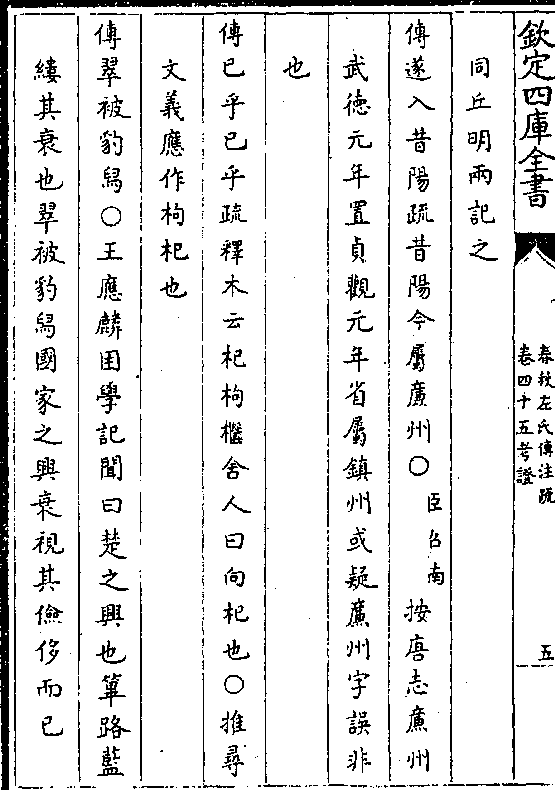 欽定四庫全書
春秋左氏傳注疏
卷四十五考證
五
同丘明兩記之
傳遂入昔陽疏昔陽今屬廉州○臣召南按唐志廉州
武德元年置貞觀元年省屬鎮州或疑廉州字誤非
也
傳已乎已乎疏釋木云杞枸檵舍人曰向杞也○推尋
文義應作枸杞也
傳翠被豹舄○王應麟困學記聞曰楚之興也篳路藍
縷其衰也翠被豹舄國家之興衰視其儉侈而已